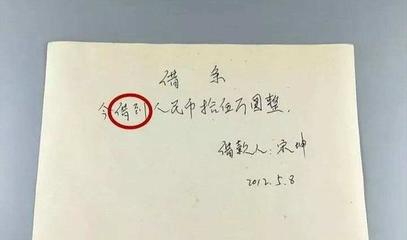 借条
今借到人民币拾伍万圆整.
借款人:宋坤
2012.5.8